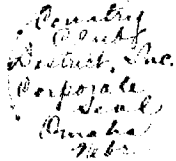 Country
Club
District, Inc.
Corporate
Seal,
Omaha
Nebr.